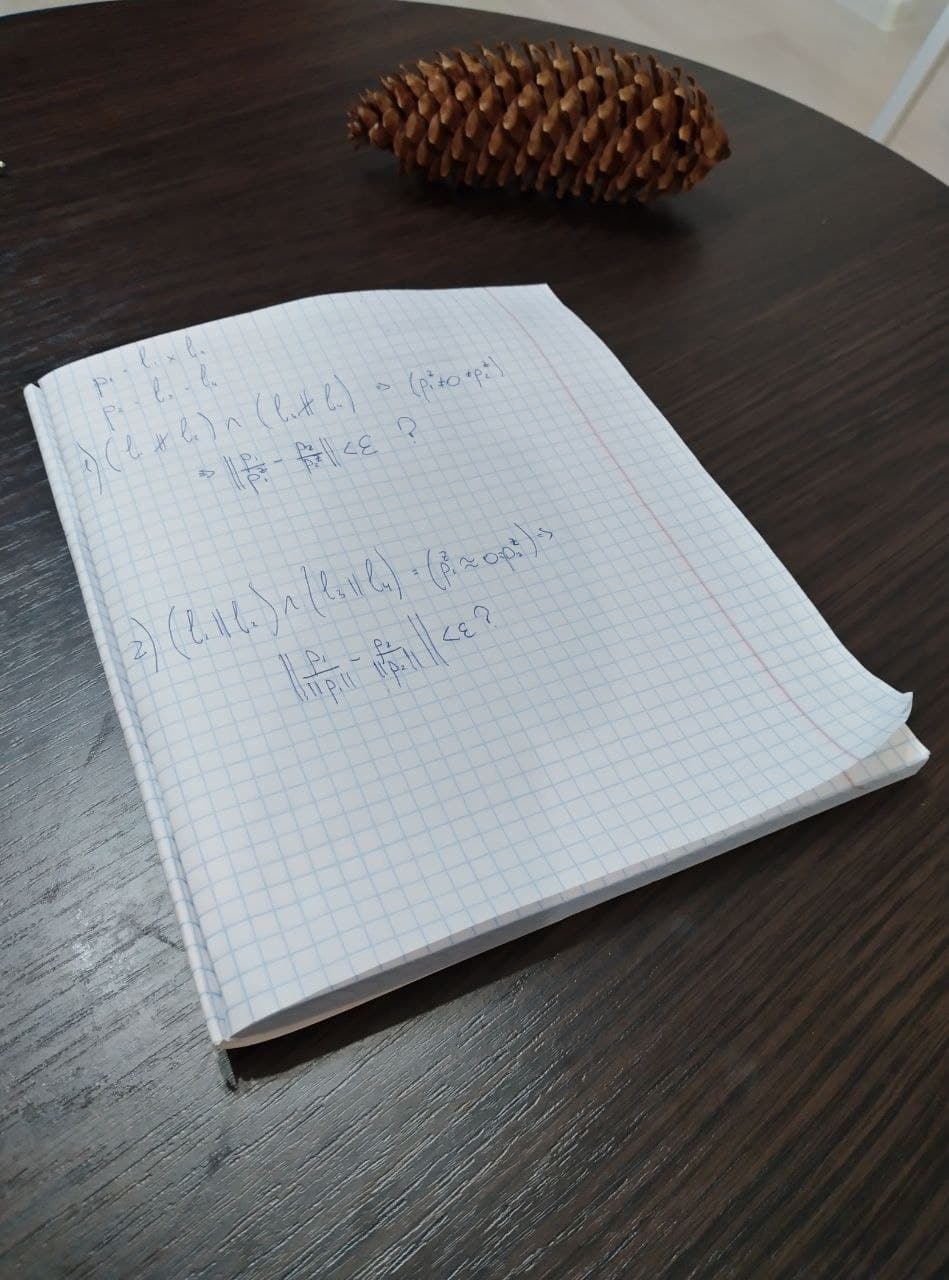 p₁ = l₁ × l₂
p₂ = l₃ × l₄
1) (l₁ ∦ l₂) ∧ (l₃ ∦ l₄) ⇒ (p₁ᶻ ≠ 0 ≠ p₂ᶻ)
⇒ ||p₁/p₁ᶻ - p₂/p₂ᶻ|| < ε ?
2) (l₁ || l₂) ∧ (l₃ || l₄) = (p₁ᶻ ≈ 0 ≈ p₂ᶻ) ⇒
||p₁/||p₁|| - p₂/||p₂|| || < ε ?